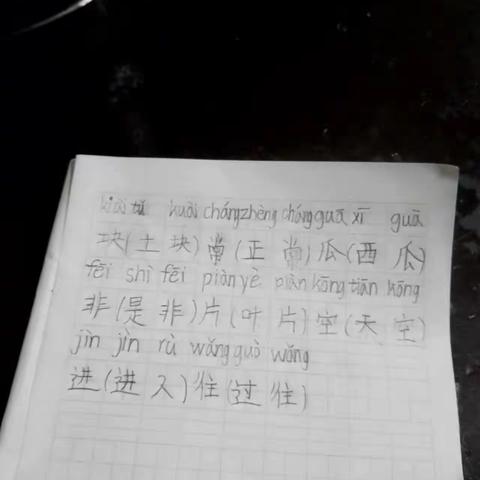 kuài tǔ kuài chángzhèng cháng guā xī guā
块(土块)常(正常)瓜(西瓜)
fēi shì fēi piàn yè piàn kōng tiān kōng
非(是非)片(叶片)空(天空)
jìn jìn rù wǎng guò wǎng
进(进入)往(过往)